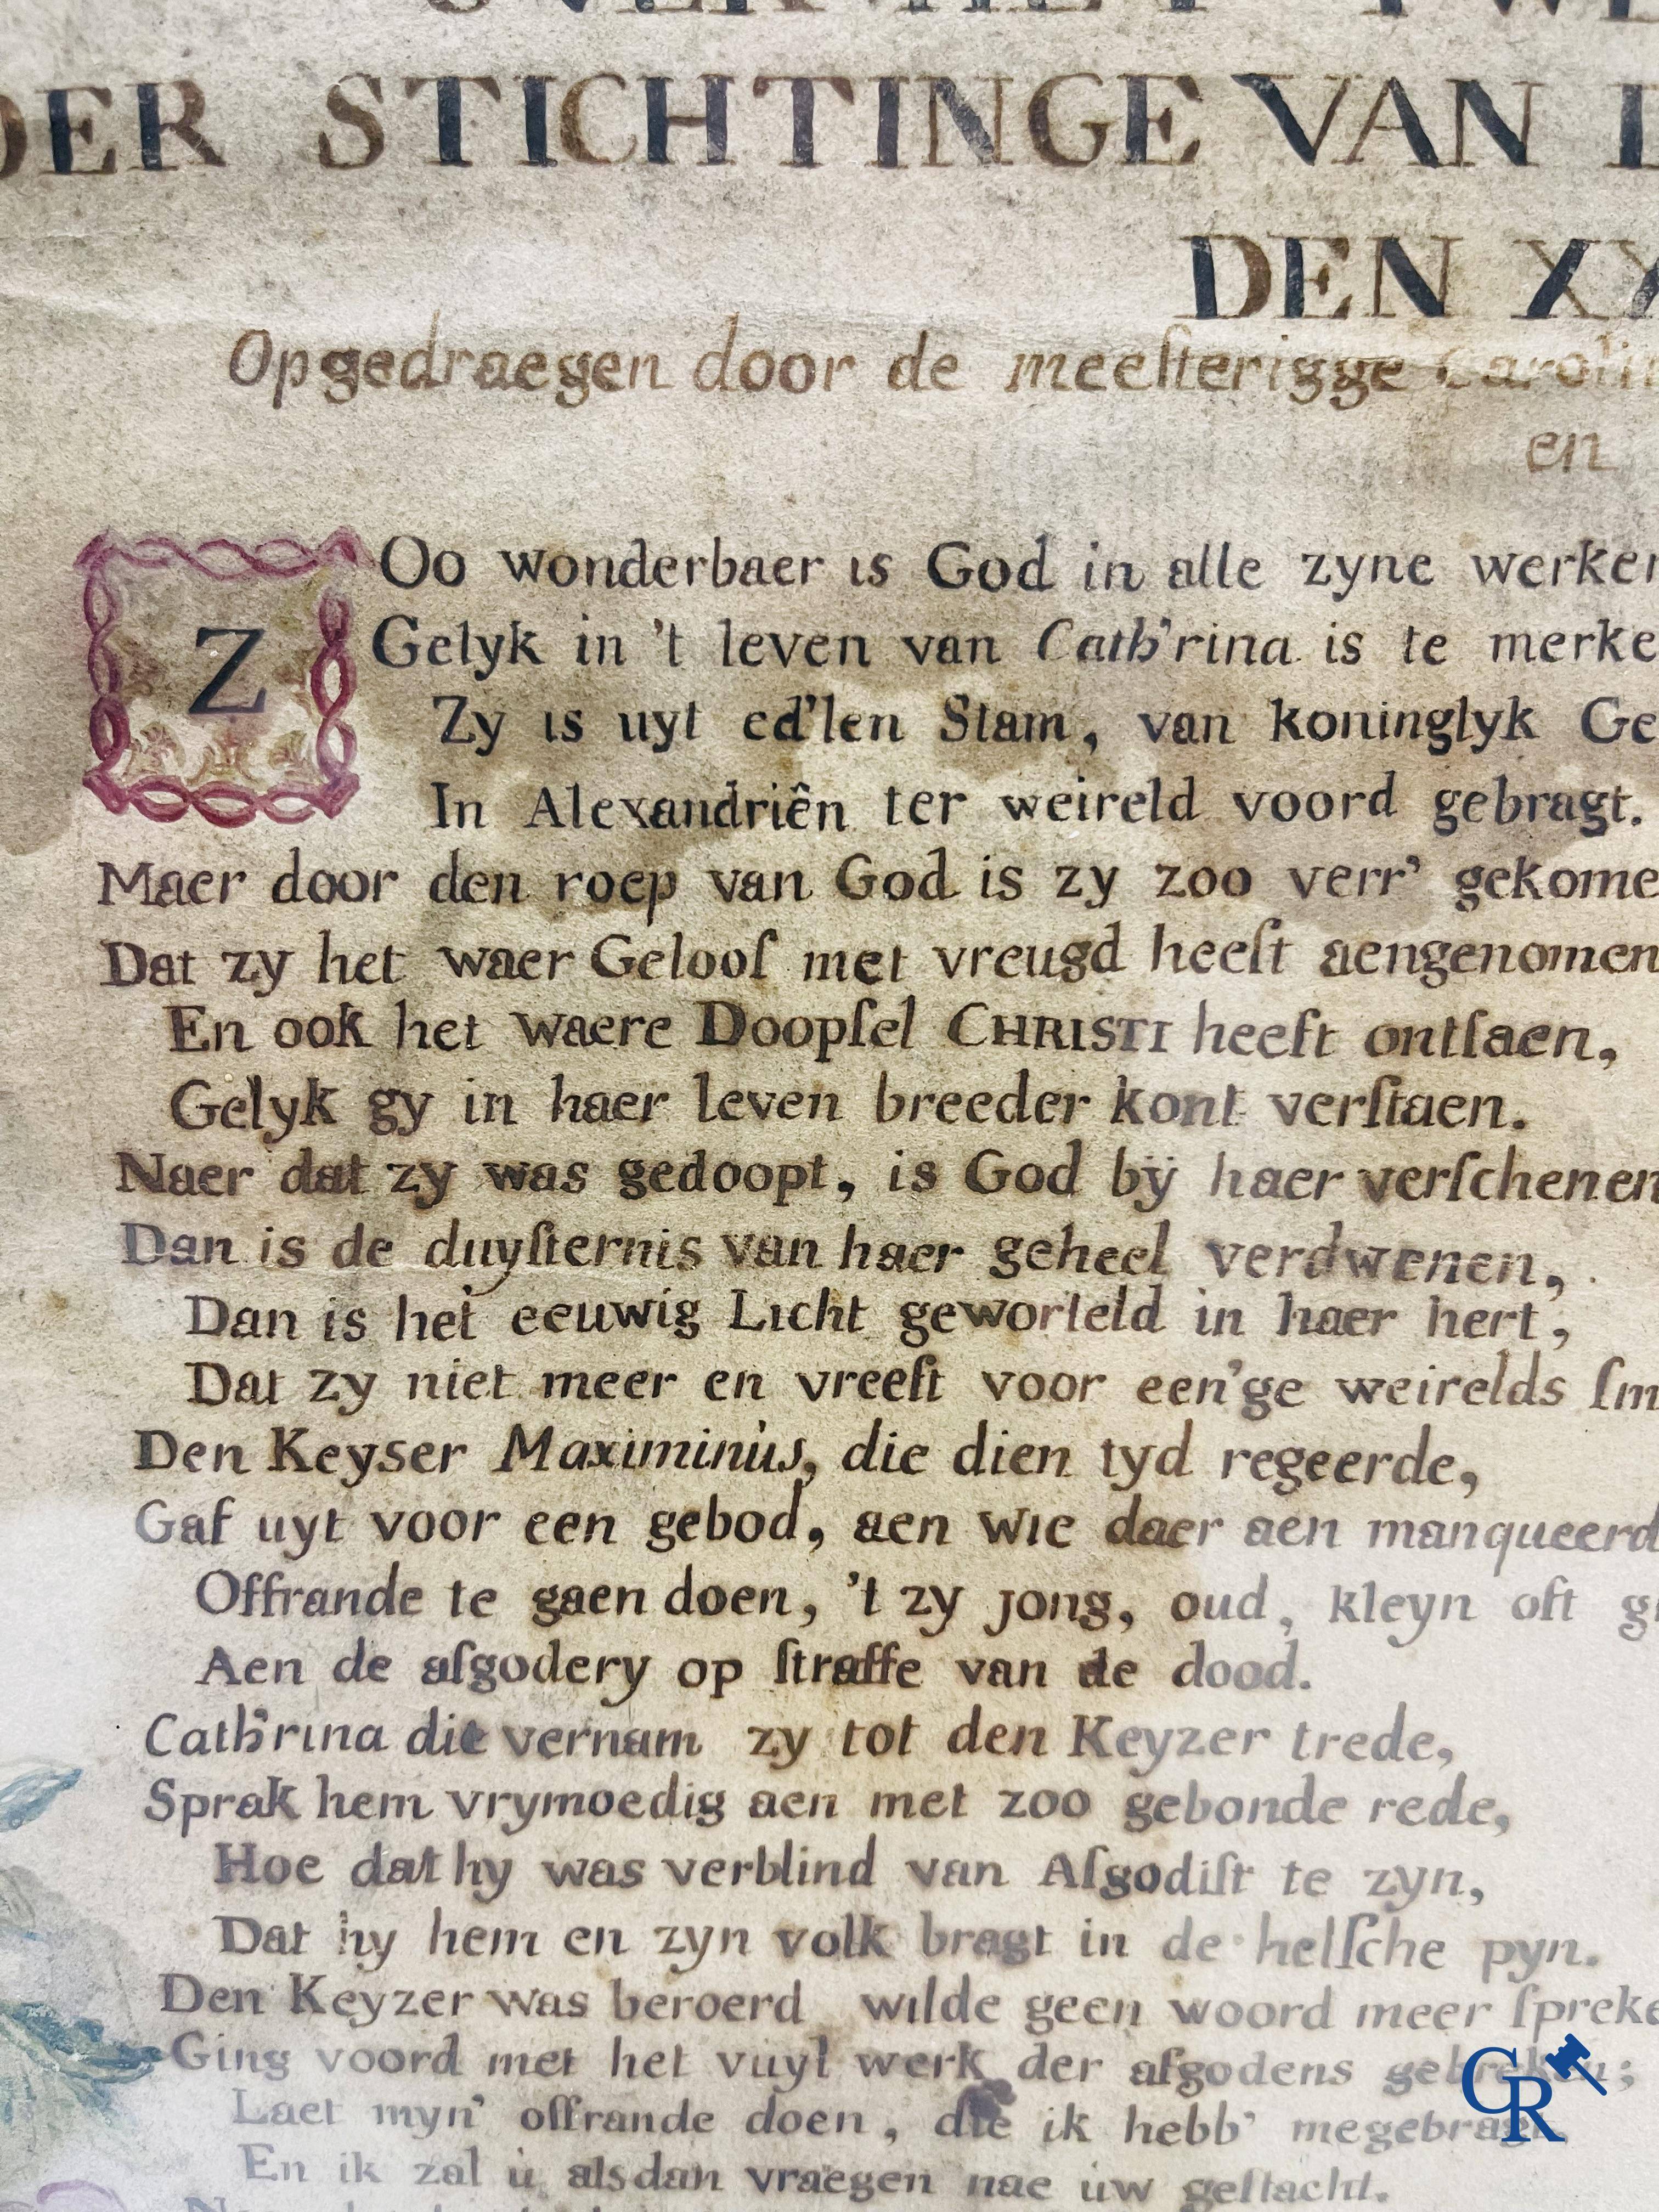 OVER HET TWE
DER STICHTINGE VAN D
DEN XX
Opgedraegen door de meeſterigge Carolin
en
ZOo wonderbaer is God in alle zyne werken
Gelyk in 't leven van Cath'rina is te merke
Zy is uyt ed'len Stam, van koninglyk Ge
In Alexandriên ter weireld voord gebragt.
Maer door den roep van God is zy zoo verr' gekome
Dat zy het waer Geloof met vreugd heeft aengenomen
En ook het waere Doopſel CHRISTI heeft ontfaen,
Gelyk gy in haer leven breeder kont verſtaen.
Naer dat zy was gedoopt, is God bÿ haer verſchenen
Dan is de duyſternis van haer geheel verdwenen,
Dan is het eeuwig Licht geworteld in haer hert,
Dat zy niet meer en vreeſt voor een'ge weirelds ſm
Den Keyser Maximinùs, die dien tyd regeerde,
Gaf uyt voor een gebod, aen wie daer aen manqueerd
Offrande te gaen doen, 't zy jong, oud, kleyn oft gr
Aen de afgodery op ſtraffe van de dood.
Cath'rina dit vernam zy tot den Keyzer trede,
Sprak hem vrymoedig aen met zoo gebonde rede,
Hoe dat hy was verblind van Afgodiſt te zyn,
Dat hy hem en zyn volk bragt in de helſche pyn.
Den Keyzer was beroerd wilde geen woord meer ſpreke
Ging voord met het vuyl werk der afgodens gebreken;
Laet myn' offrande doen, die ik hebb' megebragt,
En ik zal ù alsdan vraegen nae ùw geſlacht.
CR